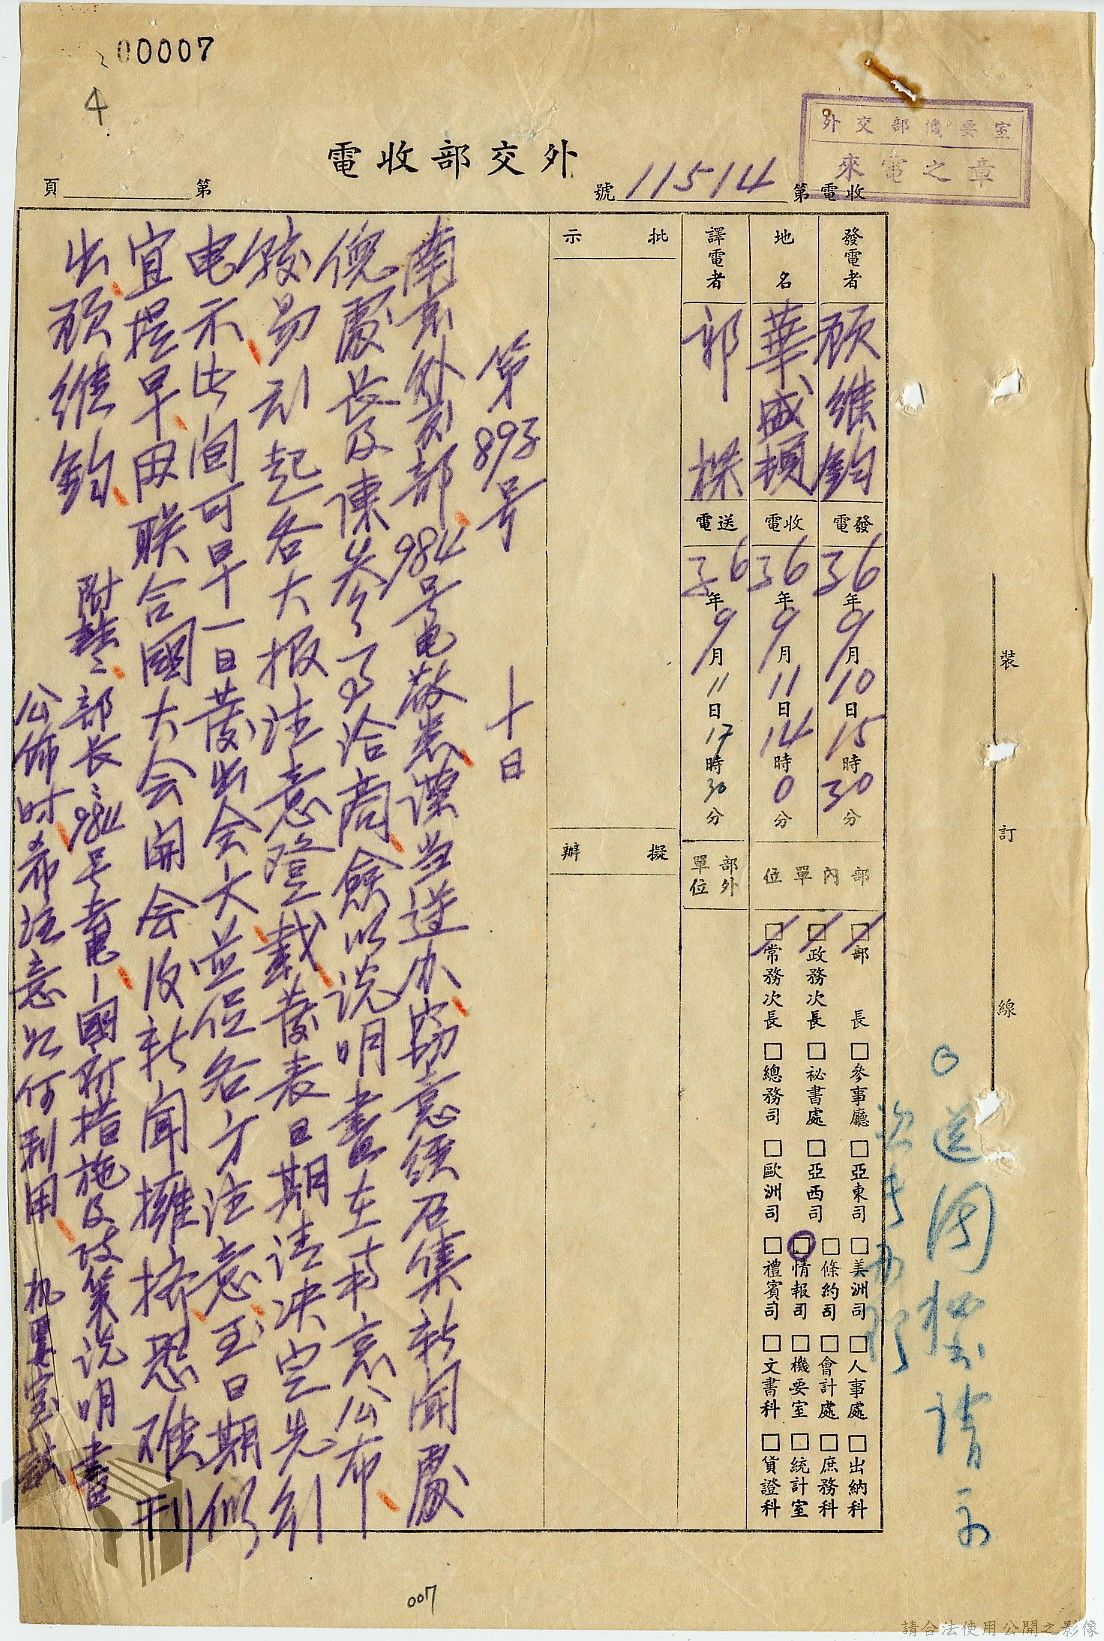 00007
4
外交部機要室
來電之章
外交部收電
收電第11514號
第 頁
發電者 顧維鈞
地名 華盛頓
譯電者 郭
發電 36年9月10日15時30分
收電 36年9月11日14時0分
送電 36年9月11日17時30分
部內單位
部外單位
□部長 □參事廳 □亞東司 □美洲司 □人事處 □出納科
□政務次長 □祕書處 □亞西司 □條約司 □會計處 □庶務科
□情報司 □機要室 □統計室
□常務次長 □總務司 □歐洲司 □禮賓司 □文書科 □貨證科
批示
擬辦
第893号 十日
南京外交部984号電敬悉謹当遵办竊意經召集新聞處
倪處長及陳参事洽商僉以説明書在京公布
較易引起各大报注意登載發表日期请决定先行
电示出间可早一日發出会大並促各方注意至日期似
宜提早因联合國大会開会后新聞擁擠恐难刊
出顧維鈞
附註：部長984号去電―國所措施及政策说明書
公佈时希注意如何利用 机要室註
裝訂線
007
請合法使用公開之影像